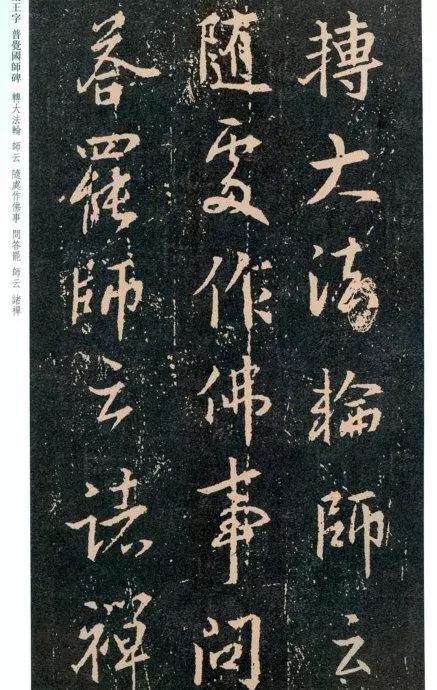 轉大法輪師云
随處作佛事問
荅罷師云諸禪
王字 普覺國師碑 轉大法輪 師云 隨處作佛事 問答罷 師云 諸禪